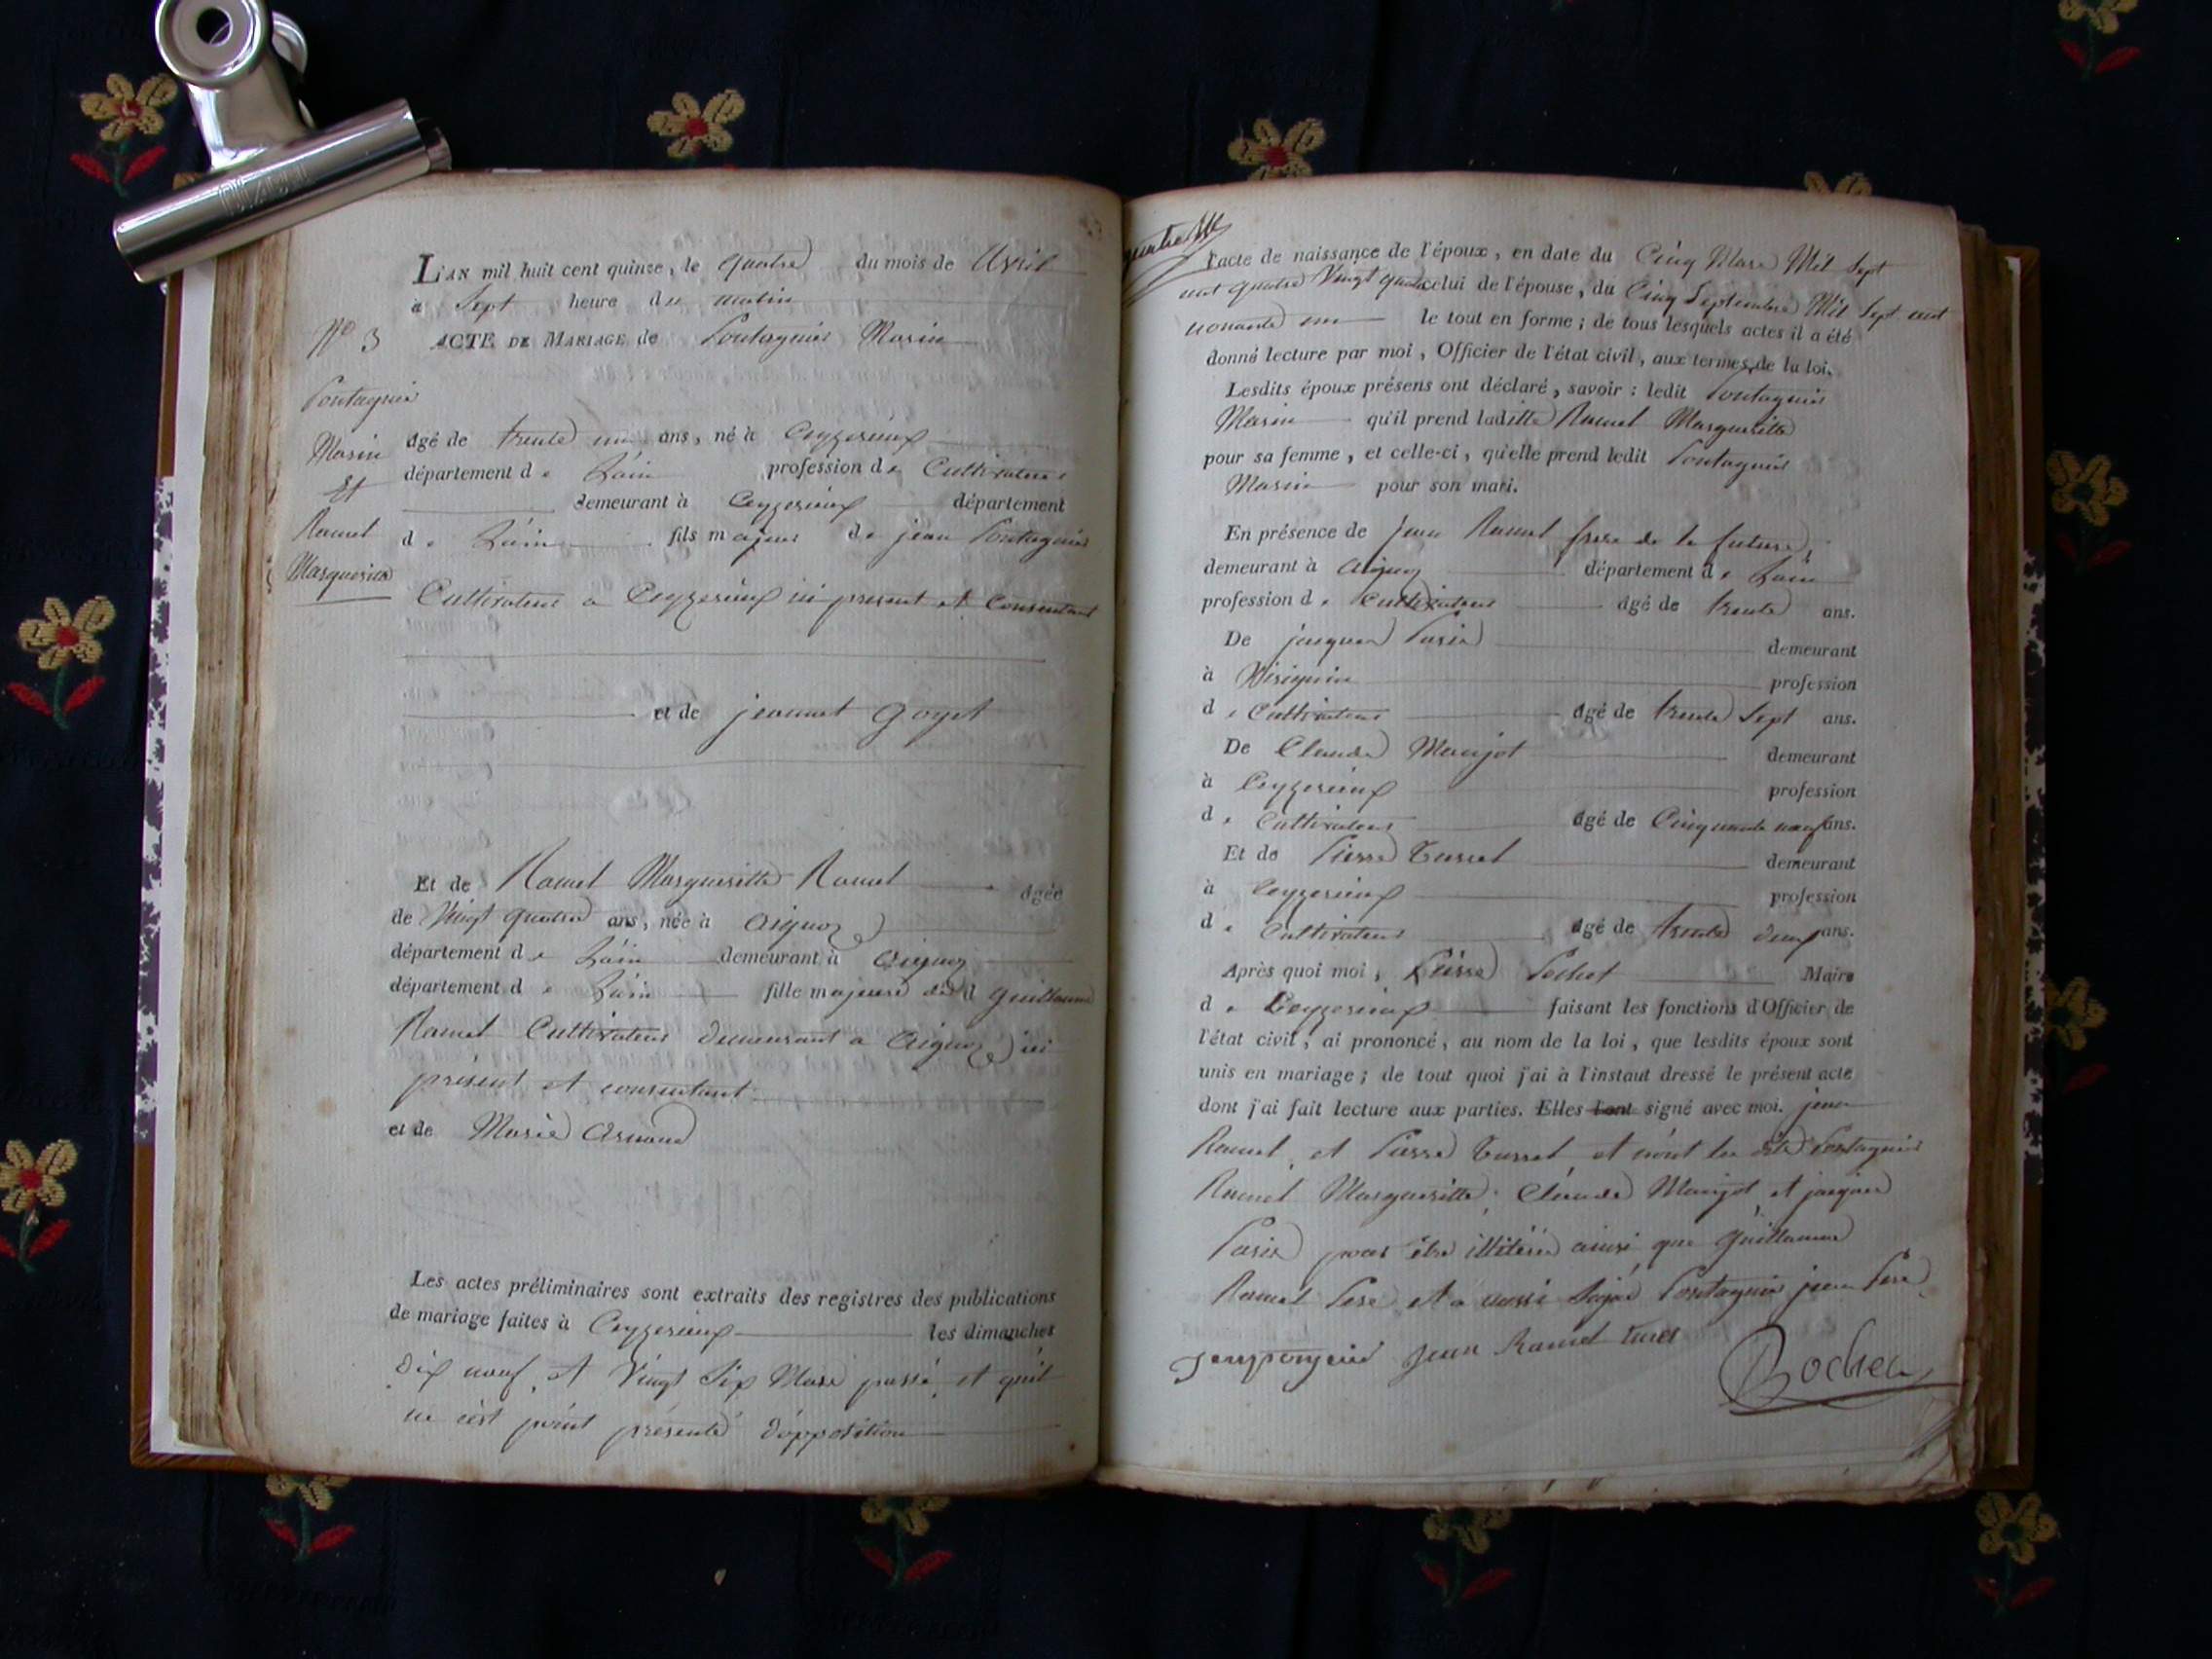 L'AN mil huit cent quinze, le quatre du mois de Avril
à Sept heure du matin
N° 3 ACTE DE MARIAGE de Pontagnier Marin
Pontagnier
Marin
Et
Ramel
Margueritte
âgé de trente un ans, né à Ceyzerieux
département de Lain profession de Cultivateur
demeurant à Ceyzerieux département
de Lain fils majeur de jean Pontagnier
Cultivateur a Ceyzerieux ici present et Consentant
et de jeannet goyet
Et de Ramel Margueritte Ramel âgée
de Vingt quatre ans, née à Aignoz
département de Lain demeurant à Aignoz
département de Lain fille majeure de guillaume
Ramel Cultivateur demeurant a Aignoz ici
présent et consentant
et de Marie Arnaud
Les actes préliminaires sont extraits des registres des publications
de mariage faites à Ceyzerieux les dimanches
dix neuf, et Vingt Six Mars passé, et quil
ne cest point présenté dopposition
l'acte de naissance de l'époux, en date du Cinq Mars Mil Sept
cent quatre Vingt quatre celui de l'épouse, du Cinq Septembre Mil Sept cent
nonante un le tout en forme; de tous lesquels actes il a été
donné lecture par moi, Officier de l'état civil, aux termes de la loi.
Lesdits époux présens ont déclaré, savoir: ledit Pontagnier
Marin qu'il prend laditte Ramel Margueritte
pour sa femme, et celle-ci, qu'elle prend ledit Pontagnier
Marin pour son mari.
En présence de Jean Ramel frere de la future,
demeurant à Aignoz département de Lain
profession de Cultivateur âgé de trente ans.
De jacques Parin demeurant
à Virignin profession
de Cultivateur âgé de trente Sept ans.
De Claude Manjot demeurant
à Ceyzerieux profession
de Cultivateur âgé de Cinquante neuf ans.
Et de Pierre Turrel demeurant
à Ceyzerieux profession
de Cultivateur âgé de trente deux ans.
Après quoi moi, Pierre Maire
de Ceyzerieux faisant les fonctions d'Officier de
l'état civil, ai prononcé, au nom de la loi, que lesdits époux sont
unis en mariage; de tout quoi j'ai à l'instant dressé le présent acte
dont j'ai fait lecture aux parties. Elles l'ont signé avec moi. jean
Ramel, et Pierre Turrel et nont les dits Pontagnier
Ramel Margueritte, Claude Manjot et jacques
Parin pour être illiteré ainsi que guillaume
Ramel Pere et a aussi Signé Pontagnier jean Pere
Jean Ramel turel